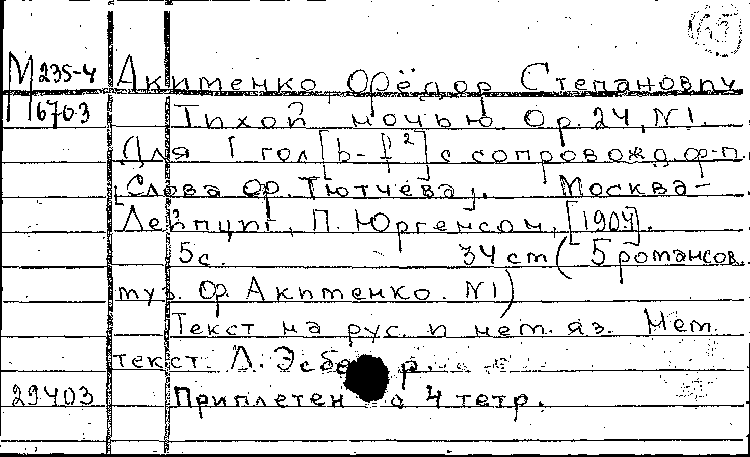 М 235-4 Акименко, Фёдор Степанович
6703 Тихой ночью. Op. 24, N1.
Для 1 гол [b-f²] с сопровожд. ф-п.
[Слова Ф. Тютчева]. Москва-
Лейпциг, П. Юргенсон, [1904].
5 с. 34 cm (5 романсов.
муз. Ф. Акименко. N1)
Текст на рус. и нем. яз. Нем.
текст Д.
29403 Приплетен 4 тетр.